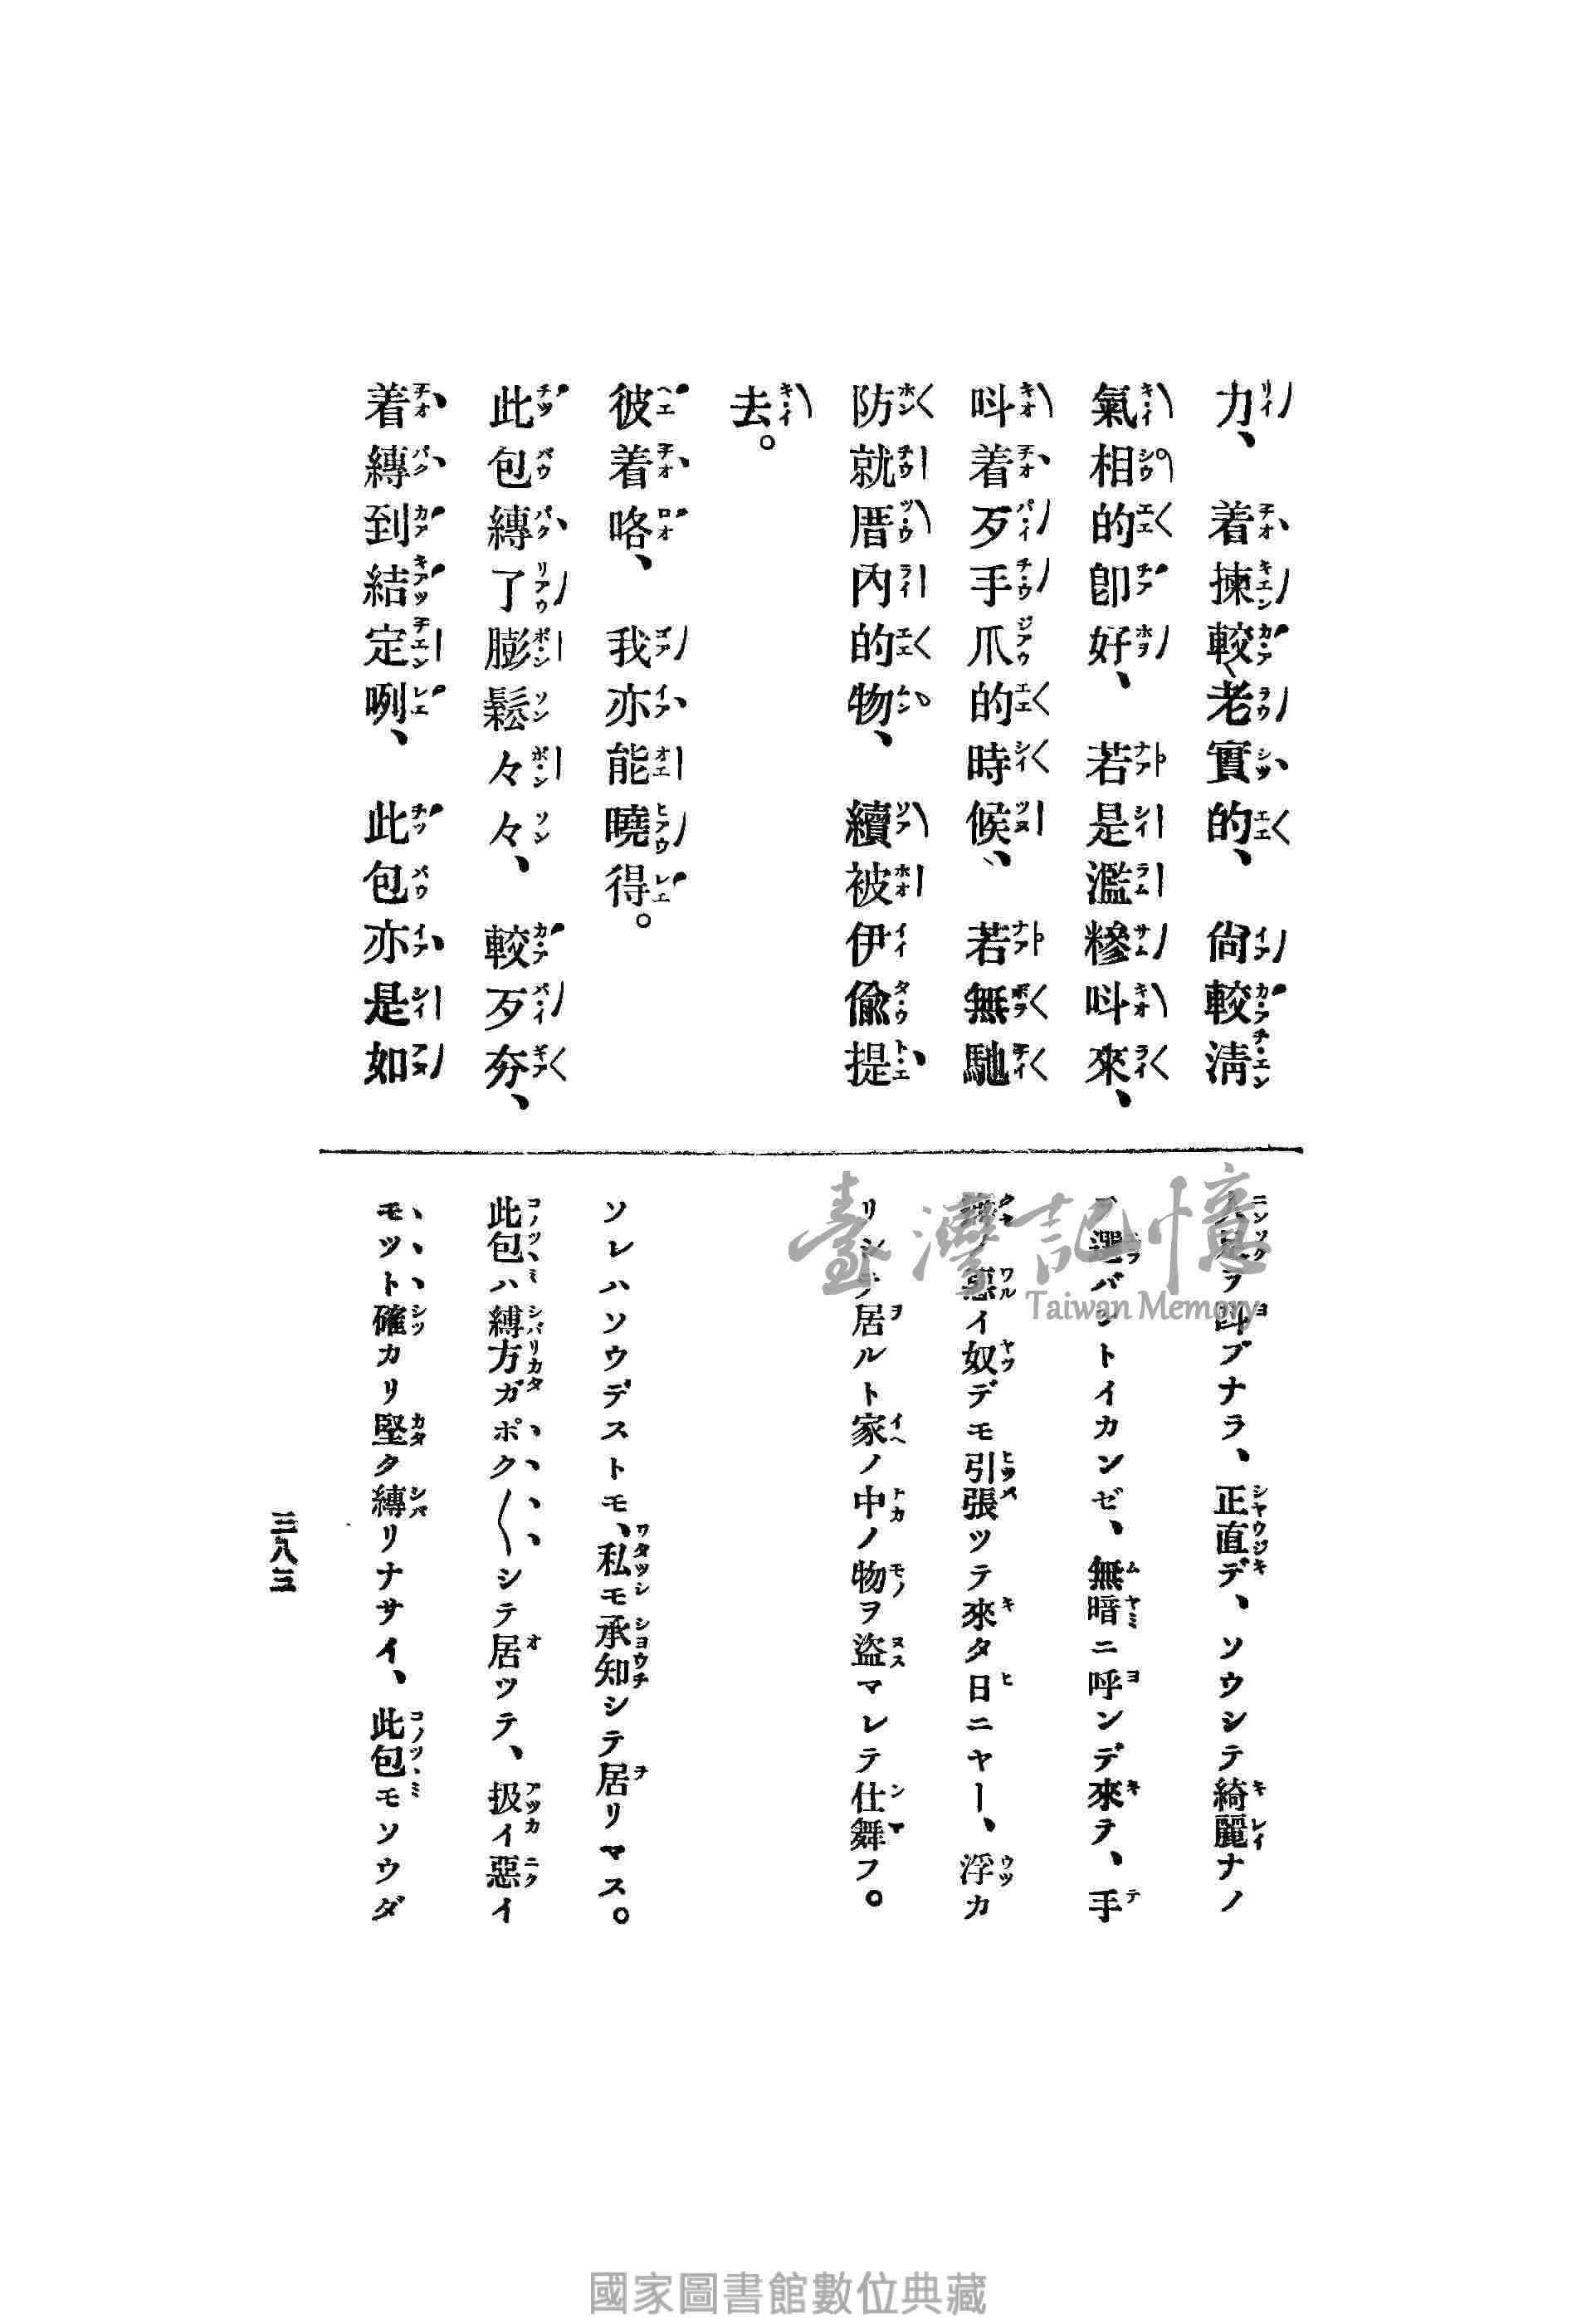 力、着揀較老實的、尙較淸
氣相的卽好、若是濫糝呌來、
呌着歹手爪的時候、若無馳
防就厝內的物、續被伊偸提
去。
彼着咯、我亦能曉得。
此包縛了膨鬆々々、較歹夯、
着縛到結定咧、此包亦是如
ヲ呌ブナラ、正直デ、ソウシテ綺麗ナノ
選バントイカンゼ、無暗ニ呼ンデ來テ、手
惡イ奴デモ引張ツテ來タ日ニヤー、浮カ
リシテ居ルト家ノ中ノ物ヲ盜マレテ仕舞フ。
ソレハソウデストモ、私モ承知シテ居リマス。
此包ハ縛方ガポク〱シテ居ツテ、扱イ惡イ
モツト確カリ堅ク縛リナサイ、此包モソウダ
三八三
臺灣記憶
Taiwan Memory
國家圖書館數位典藏